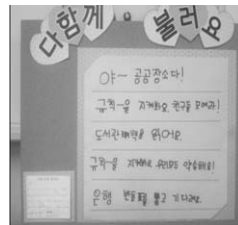 다함께 불러요
야~ 공공장소다!
규칙-을 지켜봐요 친구들 모여라!
도서관 책을 읽어요.
규칙-을 지켜봐요 우리모두 약속해요!
은행 번호표 뽑고 기다려요.